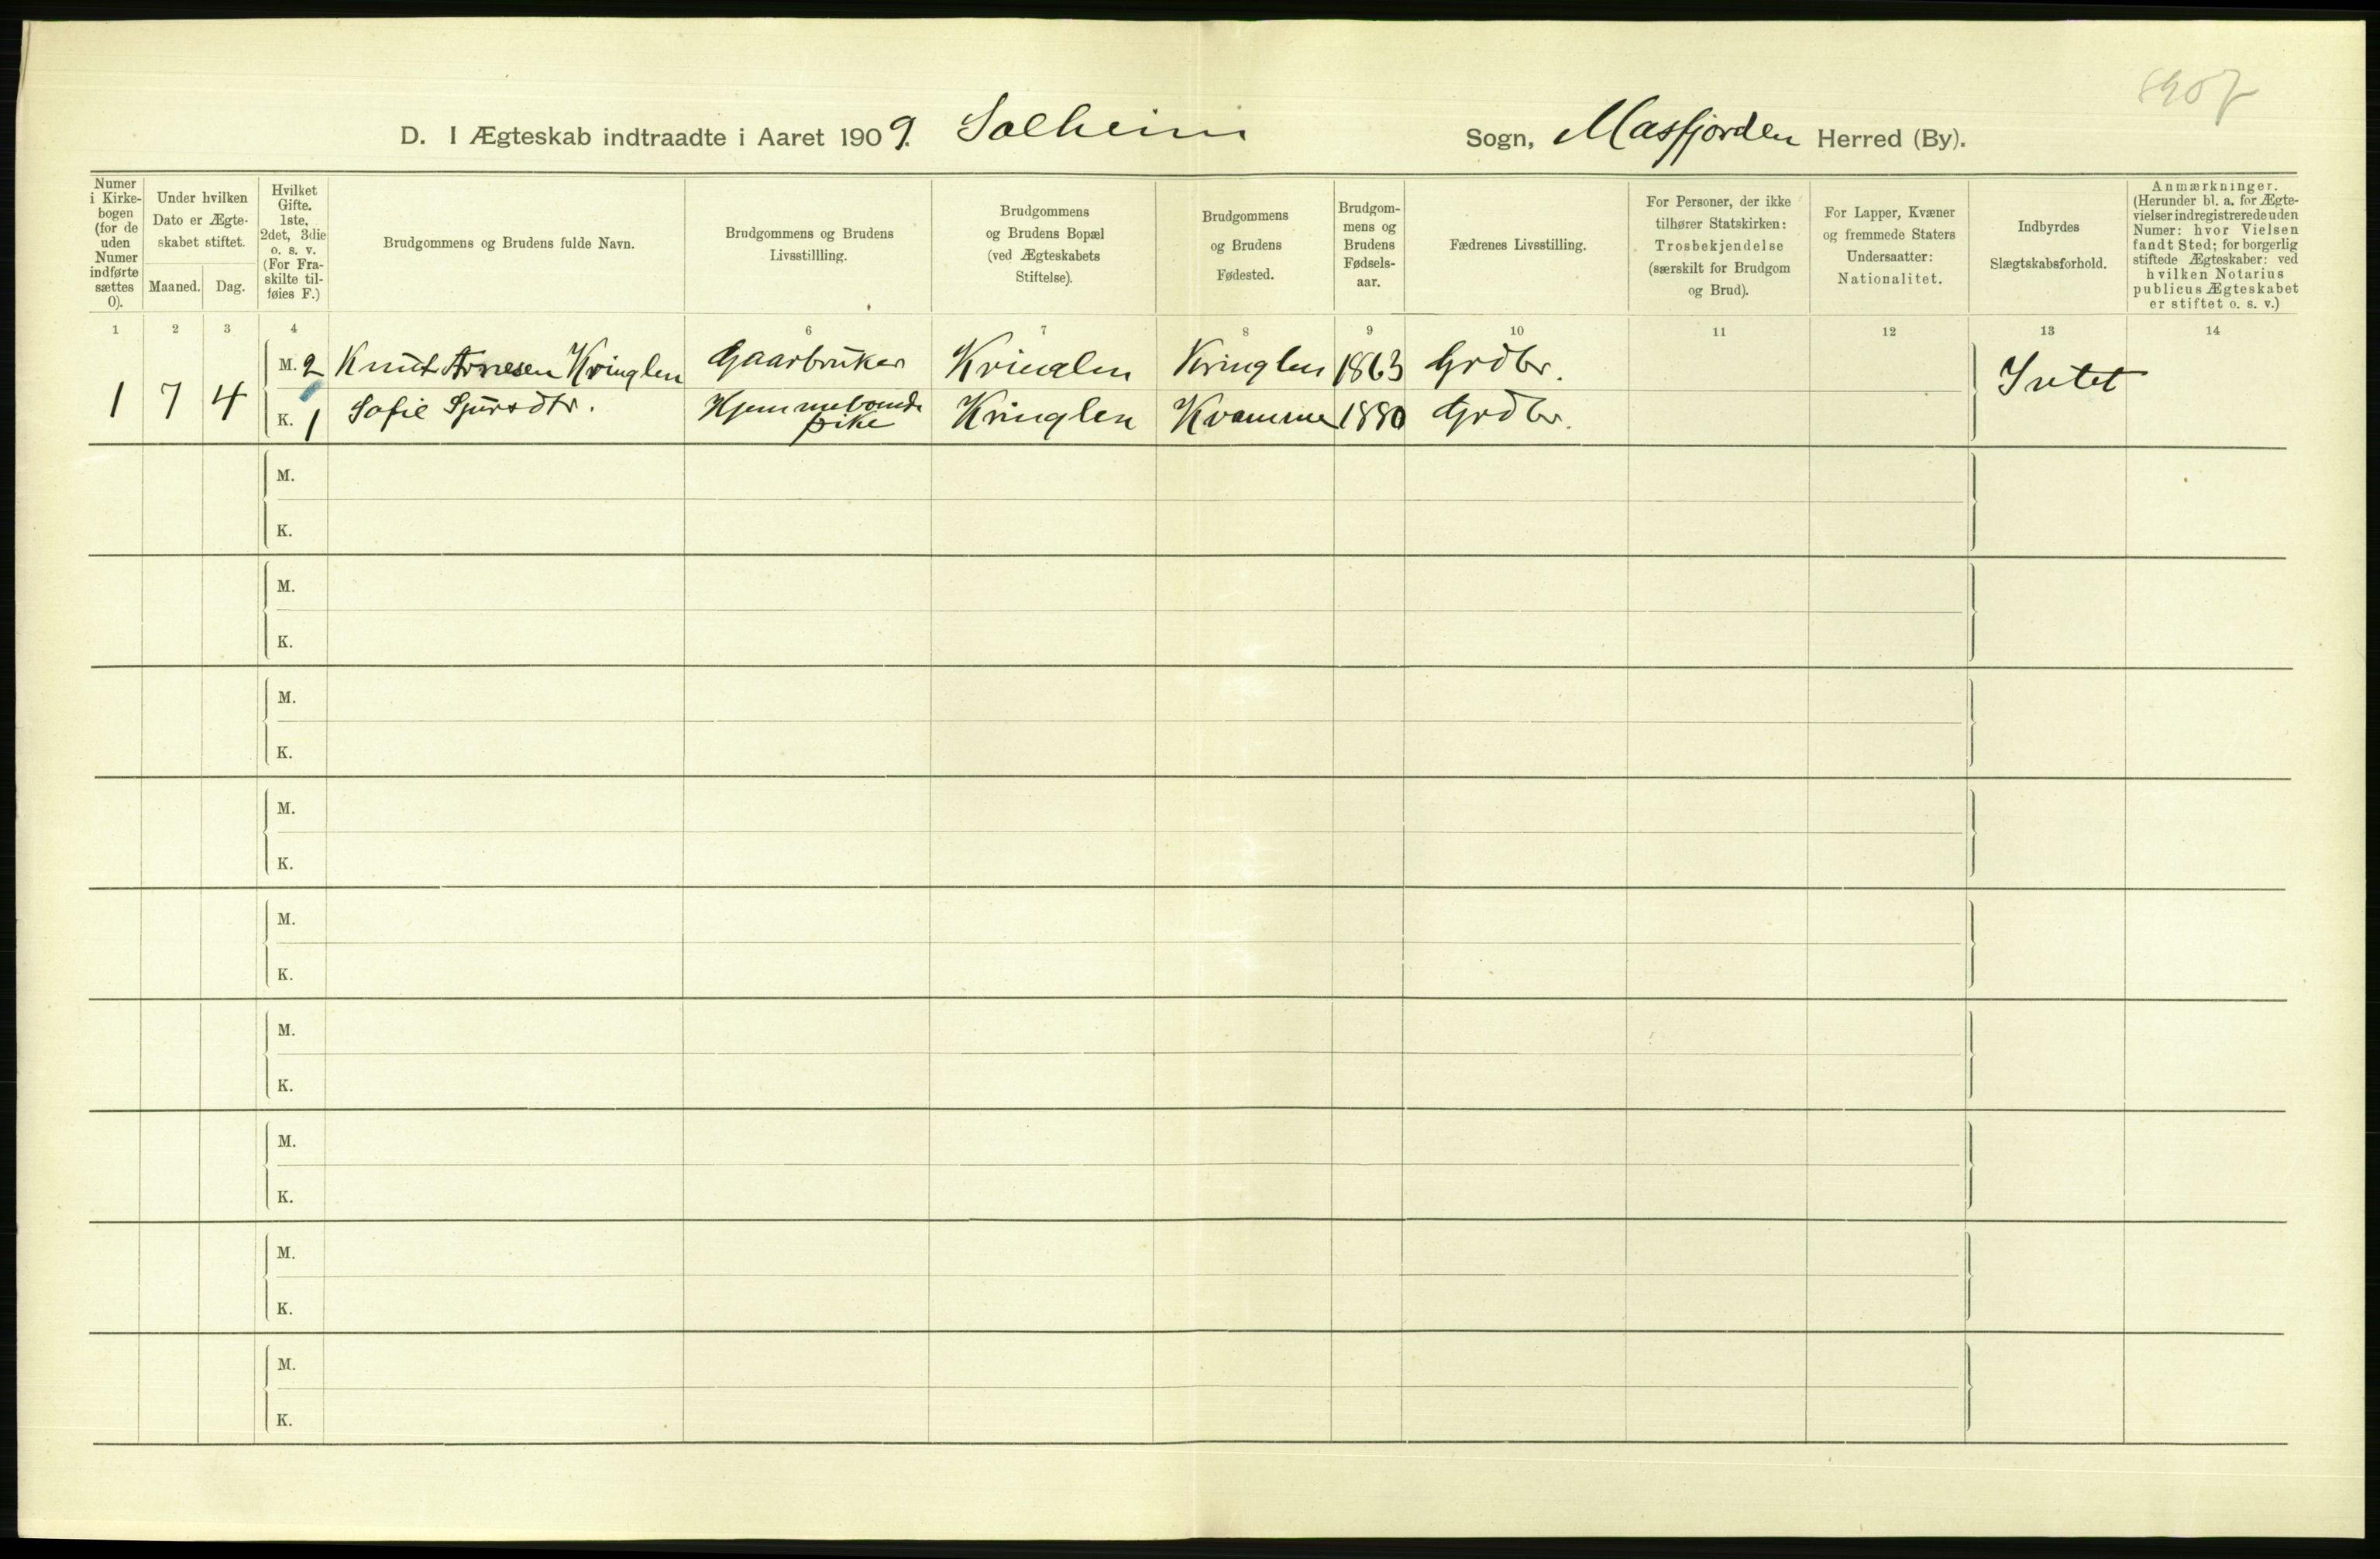 8907
D. I Ægteskab indtraadte i Aaret 1909. Solheim Sogn, Masfjorden Herred (By).
Numer i Kirke-bogen (for de uden Numer indførte sættes 0).
Under hvilken Dato er Ægte-skabet stiftet.
Maaned. Dag.
Hvilket Gifte. 1ste, 2det, 3die o. s. v. (For Fra-skilte til-føies F.)
Brudgommens og Brudens fulde Navn.
Brudgommens og Brudens Livsstillling.
Brudgommens og Brudens Bopæl (ved Ægteskabets Stiftelse).
Brudgommens og Brudens Fødested.
Brudgom-mens og Brudens Fødsels-aar.
Fædrenes Livsstilling.
For Personer, der ikke tilhører Statskirken: Trosbekjendelse (særskilt for Brudgom og Brud).
For Lapper, Kvæner og fremmede Staters Undersaatter: Nationalitet.
Indbyrdes Slægtskabsforhold.
Anmærkninger. (Herunder bl. a. for Ægte-vielser indregistrerede uden Numer: hvor Vielsen fandt Sted; for borgerlig stiftede Ægteskaber: ved hvilken Notarius publicus Ægteskabet er stiftet o. s. v.)
1 2 3 4 6 7 8 9 10 11 12 13 14
1 7 4
M. 2 Knut Arnesen Kringlen Gaarbruker Kringlen Kringlen 1863 Grdbr. Intet
K. 1 Sofie Sjursdtr. Hjemmeboende pike Kringlen Kvamme 1880 Grdbr.
M.
K.
M.
K.
M.
K.
M.
K.
M.
K.
M.
K.
M.
K.
M.
K.
M.
K.